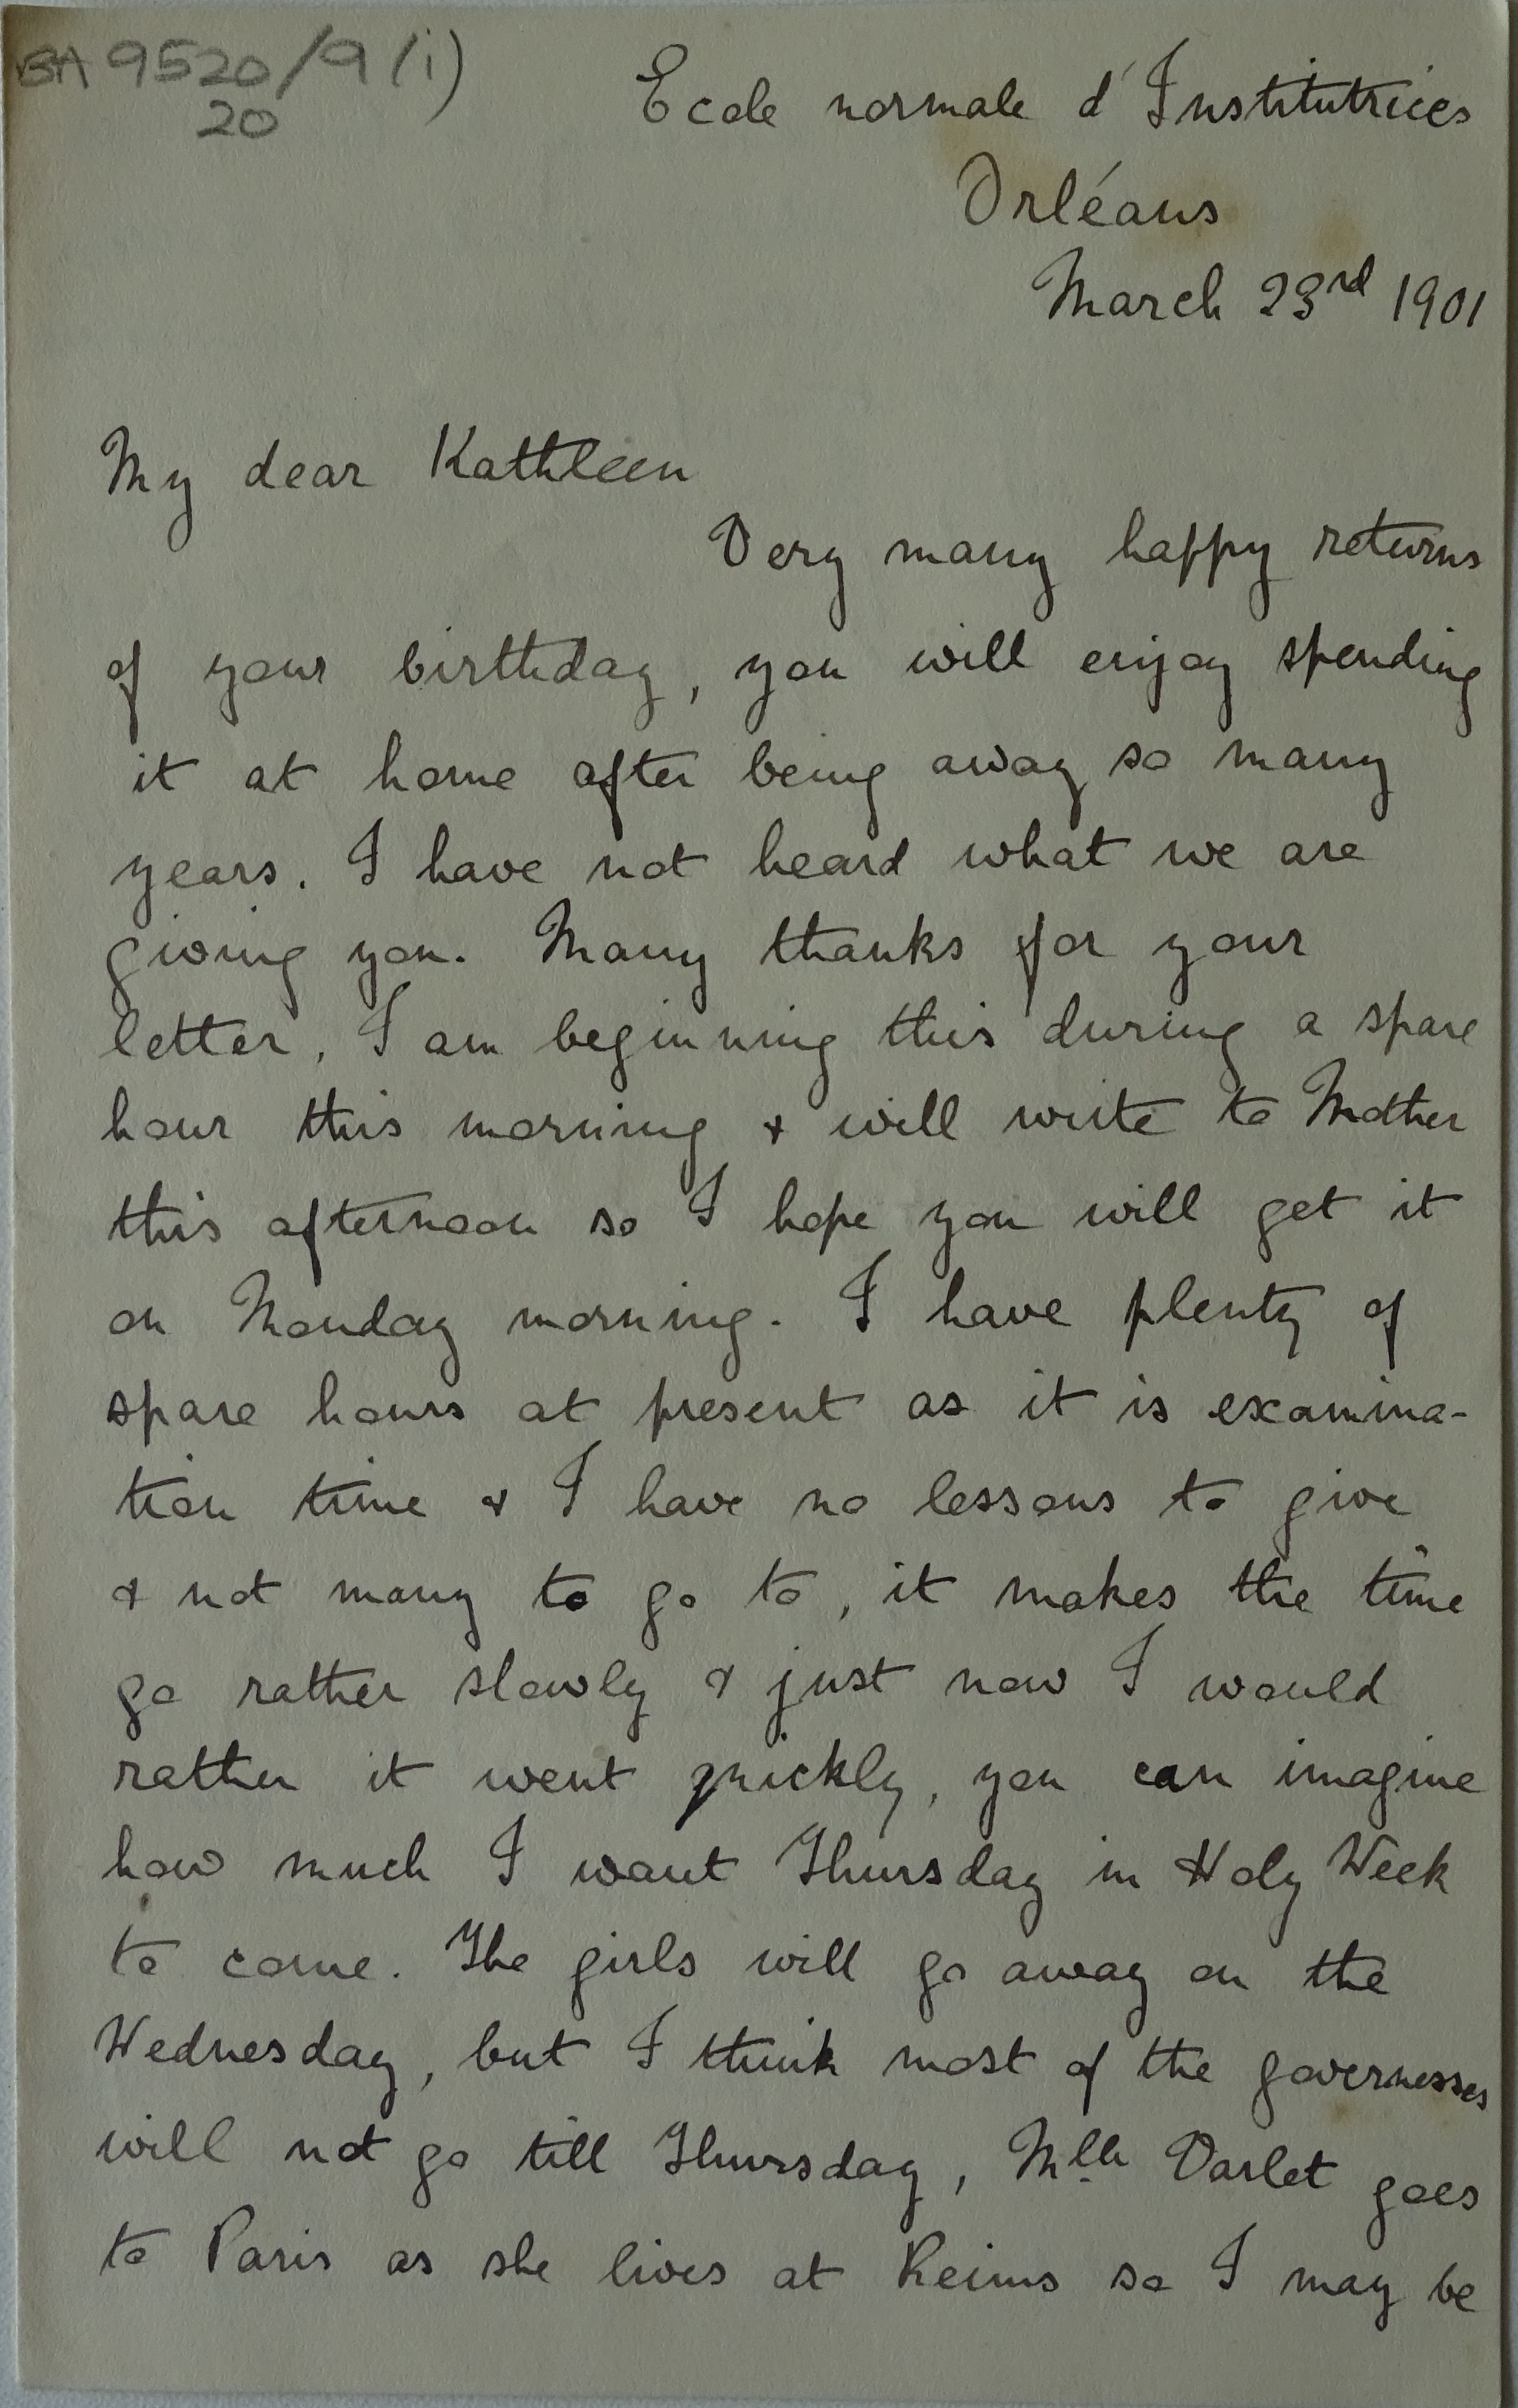 BA 9520/9(i)
20
Ecole normale d'Institutrices
Orléans
March 23rd 1901
My dear Kathleen
Very many happy returns
of your birthday, you will enjoy spending
it at home after being away so many
years. I have not heard what we are
giving you. Many thanks for your
letter, I am beginning this during a spare
hour this morning & will write to Mother
this afternoon so I hope you will get it
on Monday morning. I have plenty of
spare hours at present as it is examina-
tion time & I have no lessons to give
& not many to go to, it makes the time
go rather slowly & just now I would
rather it went quickly, you can imagine
how much I want Thursday in Holy Week
to come. The girls will go away on the
Wednesday, but I think most of the governesses
will not go till Thursday, Mlle Varlet goes
to Paris as she lives at Reims so I may be